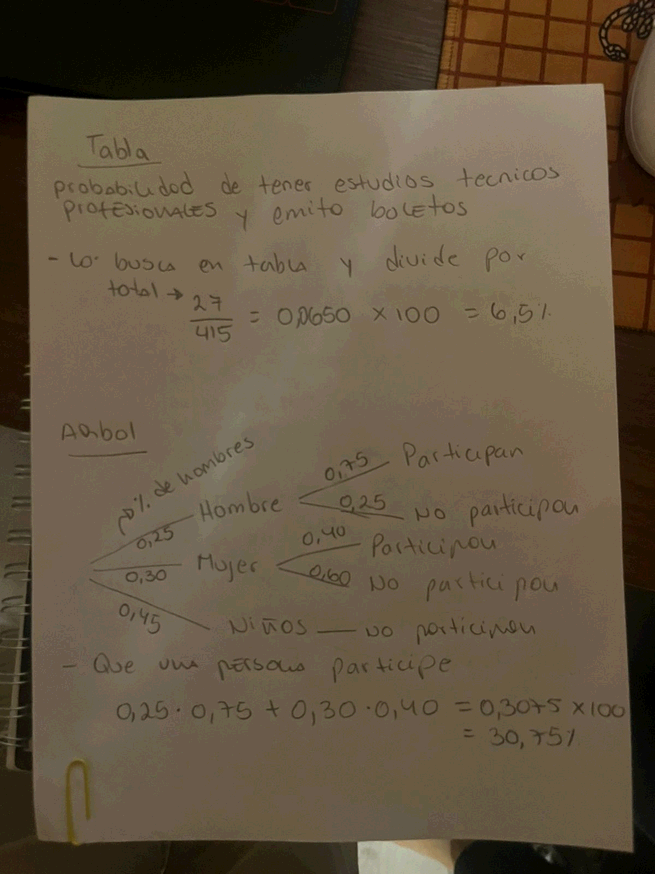 Tabla
probabilidad de tener estudios tecnicos
PROFESIONALES y emito boletos
- Lo busca en tabla y divide por
total → 27/415 = 0,0650 x 100 = 6,5%
Arbol
% de hombres
0,25 Hombre 0,75 Participan
0,25 No participan
0,30 Mujer 0,40 Participan
0,60 No participan
0,45 Niños — No participan
- Que una persona participe
0,25 · 0,75 + 0,30 · 0,40 = 0,3075 x 100
= 30,75%